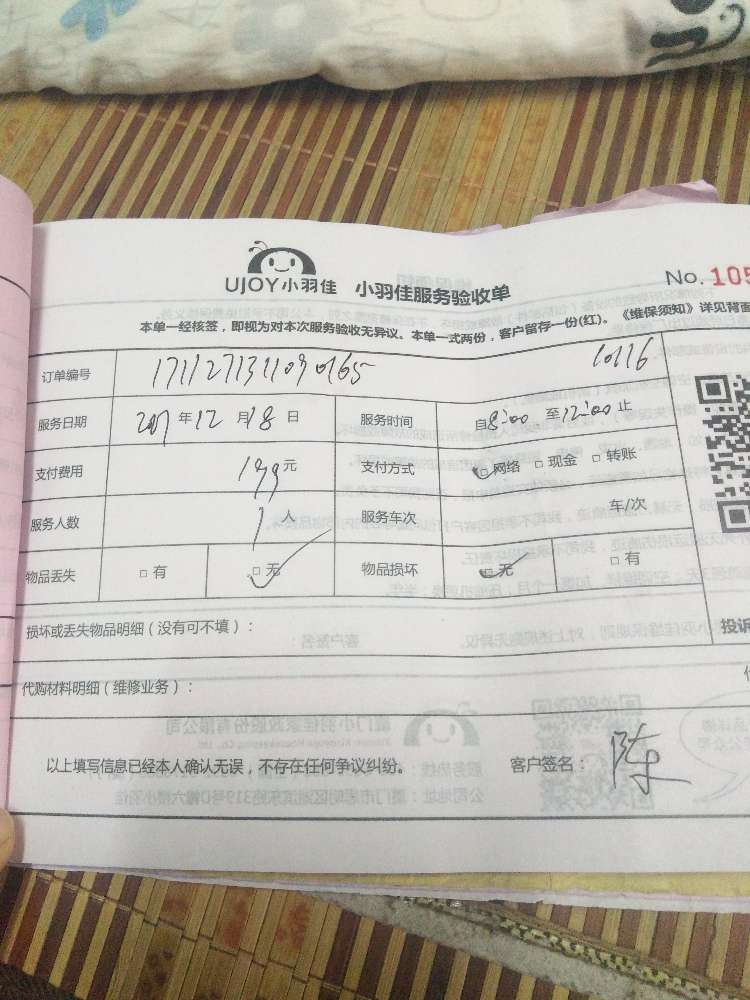 UJOY小羽佳 小羽佳服务验收单
No. 105
本单一经核签，即视为对本次服务验收无异议。本单一式两份，客户留存一份(红)。《维保须知》详见背面
订单编号 1711271311070165 10116
服务日期 2017年12月18日 服务时间 自8:00至12:00止
支付费用 199元 支付方式 □网络 □现金 □转账
服务人数 1人 服务车次 车/次
物品丢失 □有 □无 物品损坏 □无 □有
损坏或丢失物品明细（没有可不填）： 投诉
代购材料明细（维修业务）：
以上填写信息已经本人确认无误，不存在任何争议纠纷。 客户签名： 陈